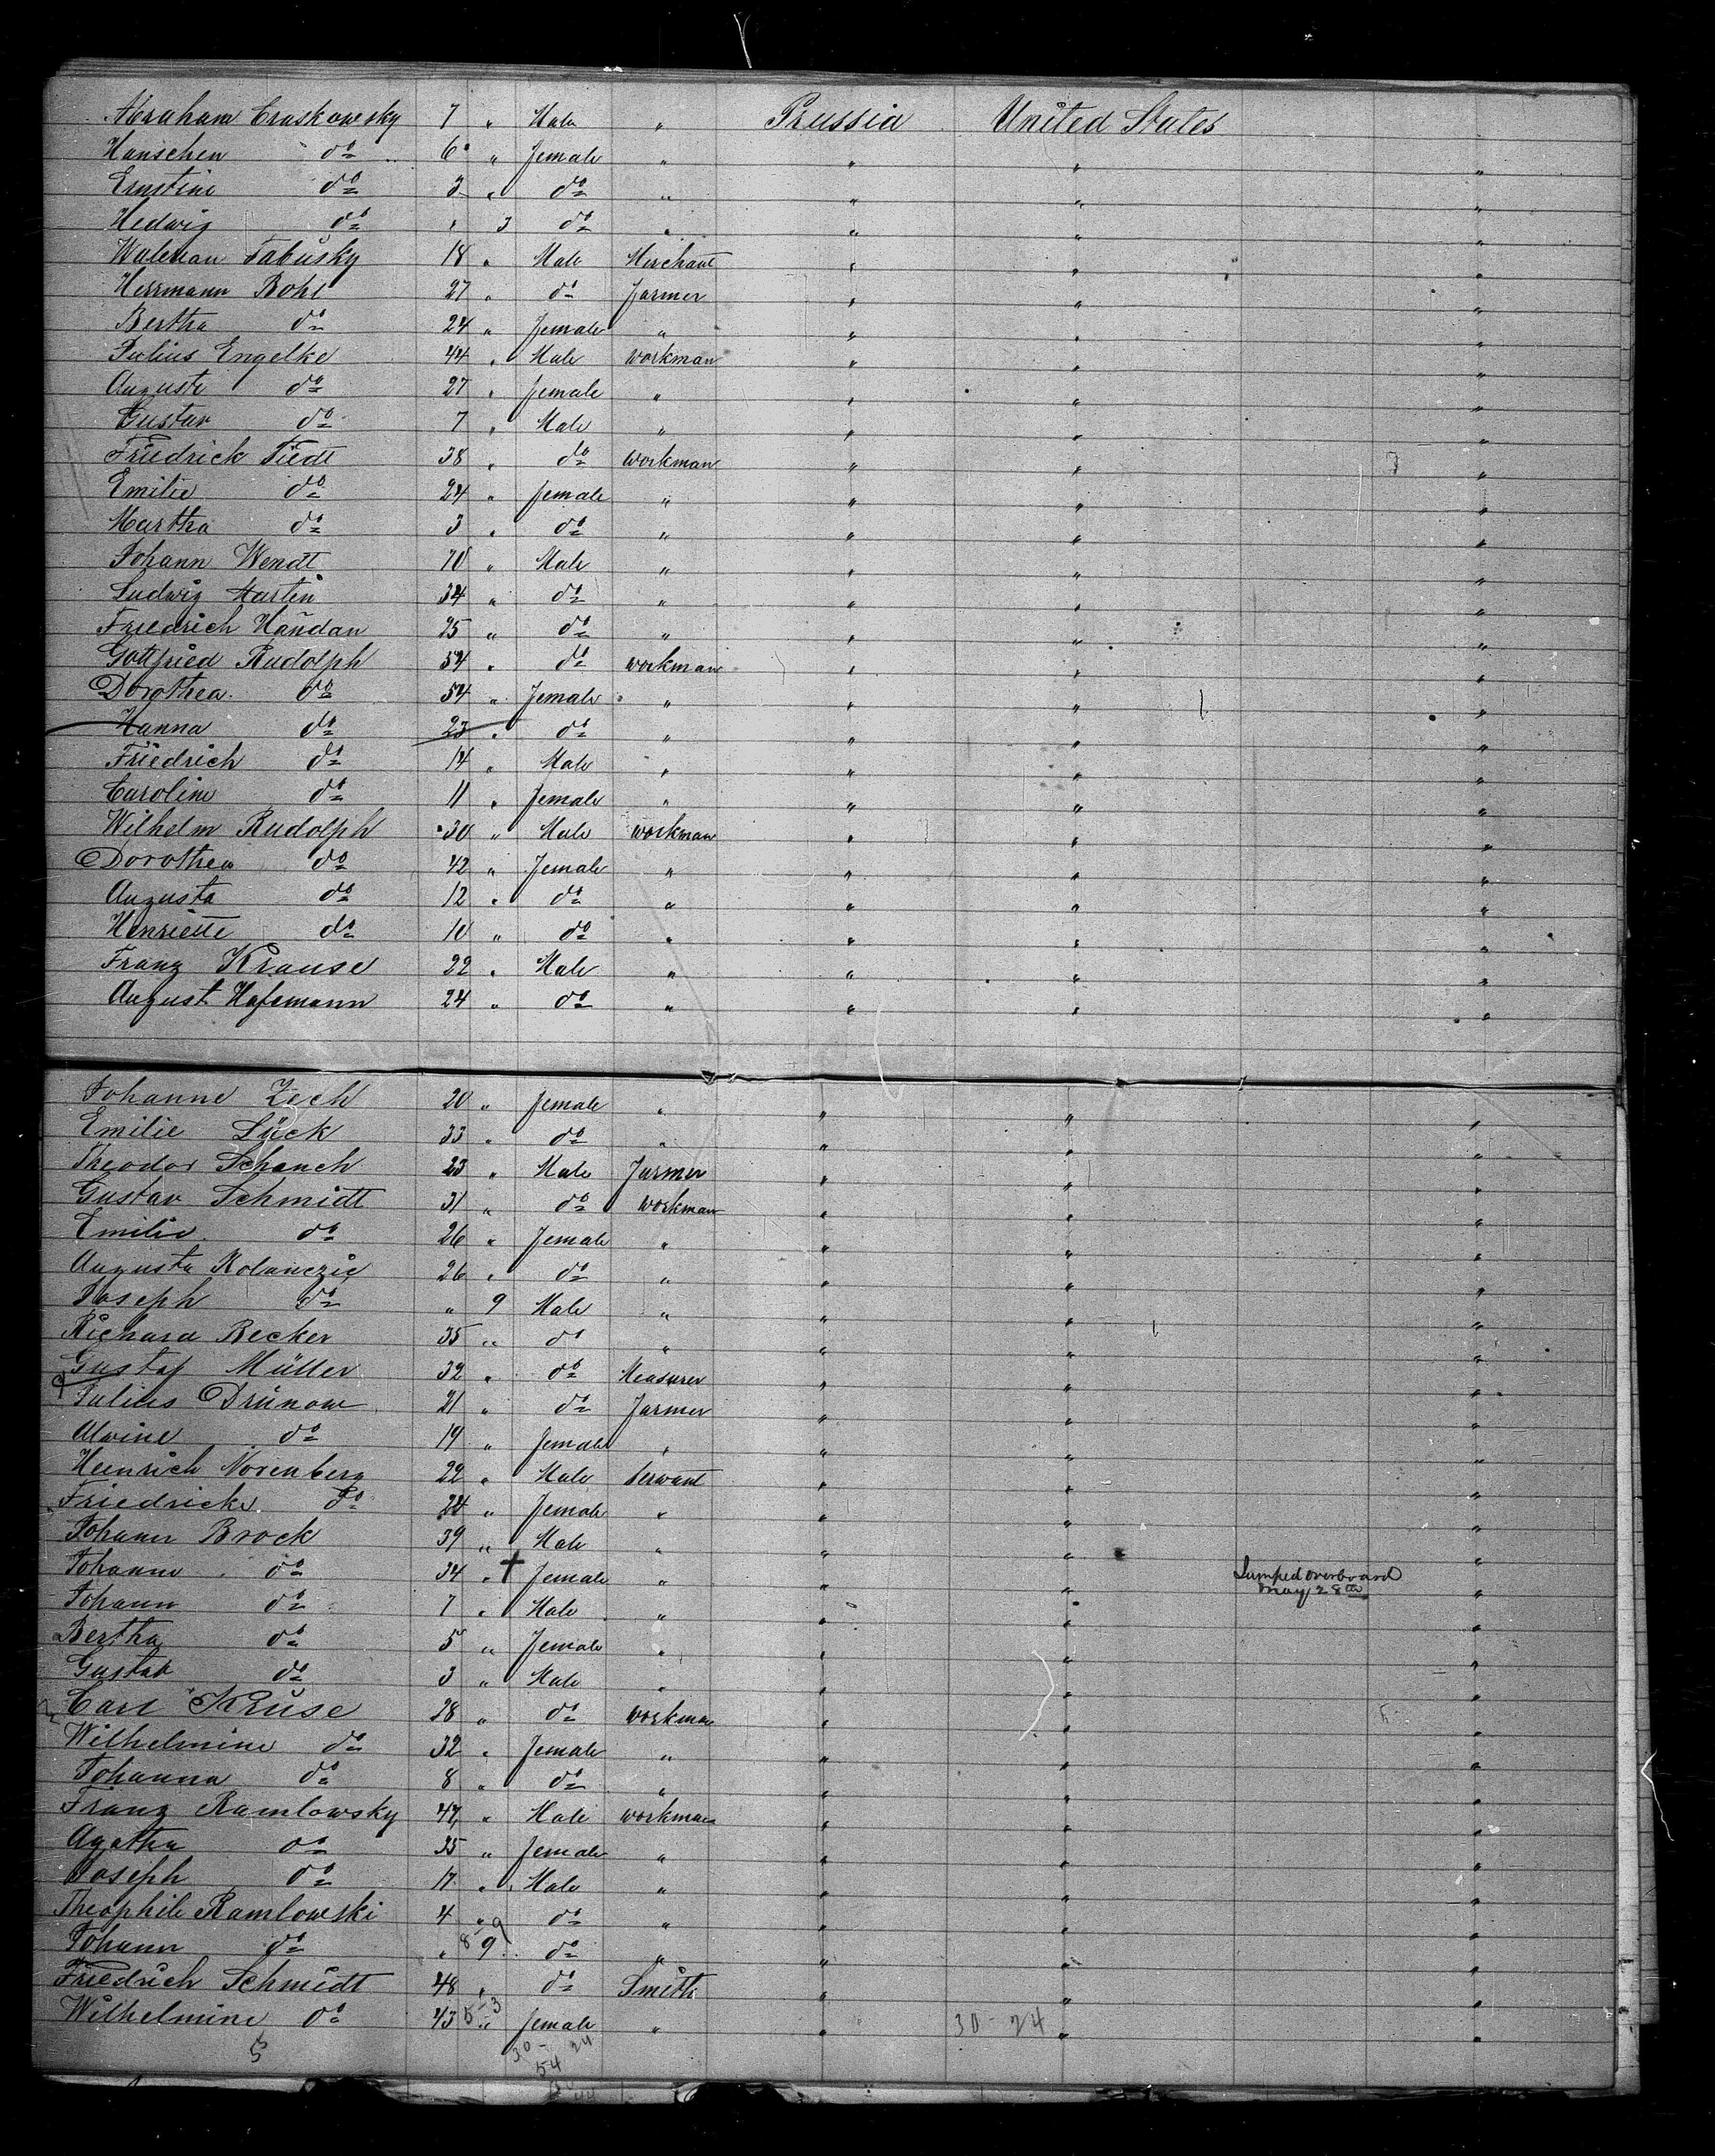 Abraham Cruskowsky 7 " Male " Prussia United States
Hanschen do 6 " female " " " "
Ernstine do 3 " do " " " "
Hedwig do " 3 do " " " "
Waleuan Fabusky 18 " Male Merchant " " "
Herrmann Bohl 27 " do farmer " " "
Bertha do 24 " female " " " "
Julius Engelke 44 " Male workman " " "
Auguste do 27 " female " " " "
Gustav do 7 " Male " " " "
Friedrick Tiedt 38 " do workman " " "
Emilie do 24 " female " " " "
Martha do 3 " do " " " "
Johann Wendt 70 " Male " " " "
Ludwig Martin 34 " do " " " "
Friedrich Haudan 25 " do " " " "
Gottfried Rudolph 54 " do workman " " "
Dorothea do 54 " female " " " "
Hanna do 23 " do " " " "
Friedrich do 14 " Male " " " "
Caroline do 11 " female " " " "
Wilhelm Rudolph 30 " Male workman " " "
Dorothea do 42 " female " " " "
Augusta do 12 " do " " " "
Henriette do 10 " do " " " "
Franz Krause 22 " Male " " " "
August Hafemann 24 " do " " " "
Johanne Zech 20 " female " " " "
Emilie Lück 33 " do " " " "
Theodor Schench 23 " Male farmer " " "
Gustav Schmidt 31 " do workman " " "
Emilie do 26 " female " " " "
Augusta Kolanczic 26 " do " " " "
Joseph do " 9 Male " " " "
Richard Becker 35 " do " " " "
Gustaf Müller 32 " do Measurer " " "
Julius Drünow 21 " do farmer " " "
Alvine do 19 " female " " " "
Heinrich Norenberg 22 " Male Servant " " "
Friedricke do 24 " female " " " "
Johann Brock 39 " Male " " " "
Johanne do 34 " † female " " " Jumped overboard May 28th "
Johann do 7 " Male " " " "
Bertha do 5 " female " " " "
Gustav do 3 " Male " " " "
Carl Kruse 28 " do workman " " "
Wilhelmine do 32 " female " " " "
Johanna do 8 " do " " " "
Franz Ramlowsky 47 " Male workman " " "
Agatha do 35 " female " " " "
Joseph do 17 " Male " " " "
Theophile Ramlowski 4 " do " " " "
Johann do " 9 do " " " "
8-9
Friedrich Schmidt 48 " do Smith " " "
Wilhelmine do 43 " female " " " "
5-3
30-24
5
30-24
54